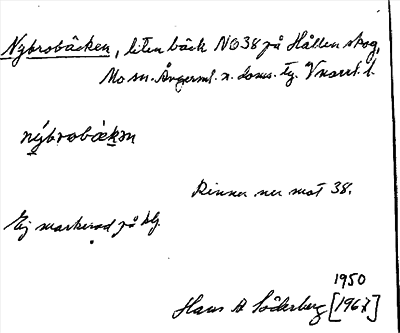 Nybrobäcken, liten bäck NO38 på Hållen skog,
Mo sn. Ångerml. n. doms. Tg. Vnorrl. l.
nýbrobækɜn
Rinner ner mot 38.
Ej markerad på bg.
1950
Hans A Söderberg [1967]